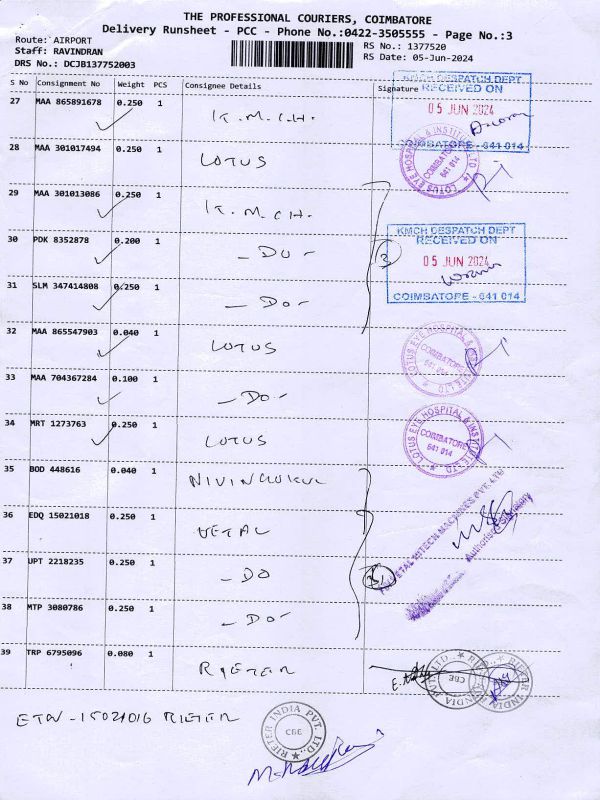 THE PROFESSIONAL COURIERS, COIMBATORE
Delivery Runsheet - PCC - Phone No.:0422-3505555 - Page No.:3
Route: AIRPORT
Staff: RAVINDRAN
DRS No.: DCJB137752003
RS No.: 1377520
RS Date: 05-Jun-2024
S No Consignment No Weight PCS Consignee Details Signature
27 MAA 865891678 0.250 1 K.M.C.H.
KMCH DESPATCH DEPT
RECEIVED ON
05 JUN 2024
COIMBATORE - 641 014
28 MAA 301017494 0.250 1 LOTUS
LOTUS EYE HOSPITAL & INSTITUTE LTD
COIMBATORE
641 014
29 MAA 301013086 0.250 1 K.M.CH.
30 PDK 8352878 0.200 1 - DO -
3
KMCH DESPATCH DEPT
RECEIVED ON
05 JUN 2024
COIMBATORE - 641 014
31 SLM 347414808 0.250 1 - DO -
32 MAA 865547903 0.040 1 LOTUS
LOTUS EYE HOSPITAL & INSTITUTE LTD
COIMBATORE
641 014
33 MAA 704367284 0.100 1 - DO -
34 MRT 1273763 0.250 1 LOTUS
LOTUS EYE HOSPITAL & INSTITUTE LTD
COIMBATORE
641 014
35 BOD 448616 0.040 1
36 EDQ 15021018 0.250 1 VETAL
37 UPT 2218235 0.250 1 - DO
VETAL HITECH MACHINES PVT. LTD
Authorised Signatory
38 MTP 3080786 0.250 1 - DO -
39 TRP 6795096 0.080 1 RIETER
RIETER INDIA PVT. LTD.
CBE
ETW - 15021016 RIETER
RIETER INDIA PVT. LTD.
CBE